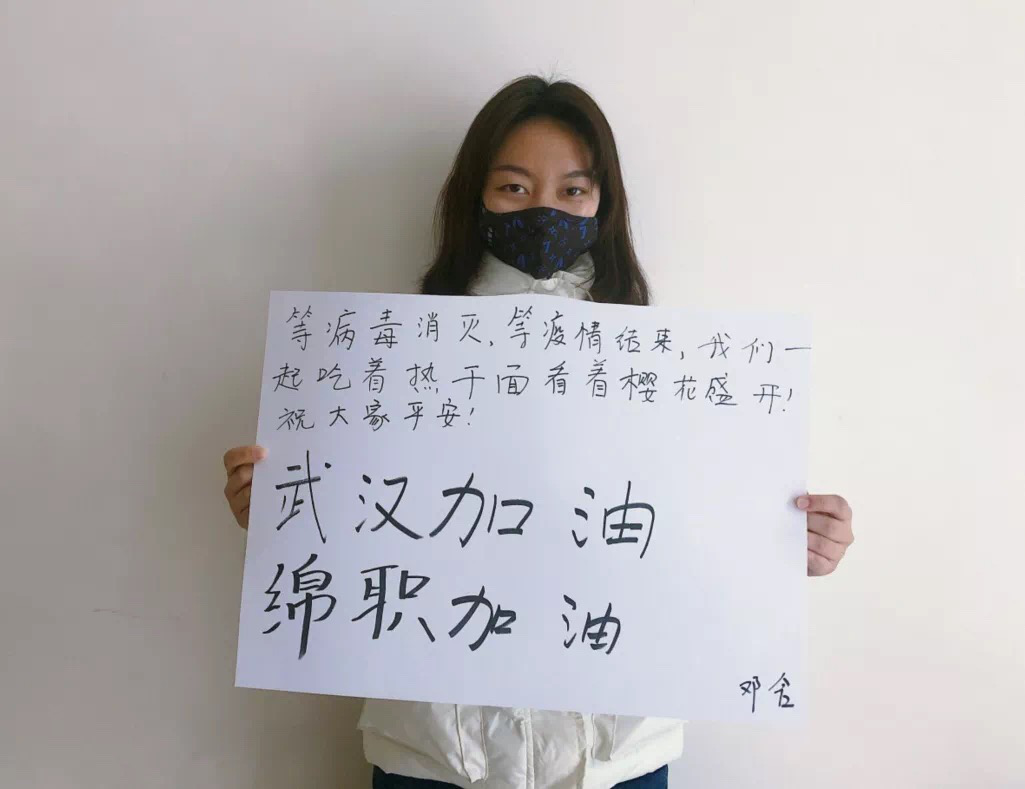 等病毒消灭,等疫情结束,我们一
起吃着热干面看着樱花盛开!
祝大家平安!
武汉加油
绵职加油
邓含